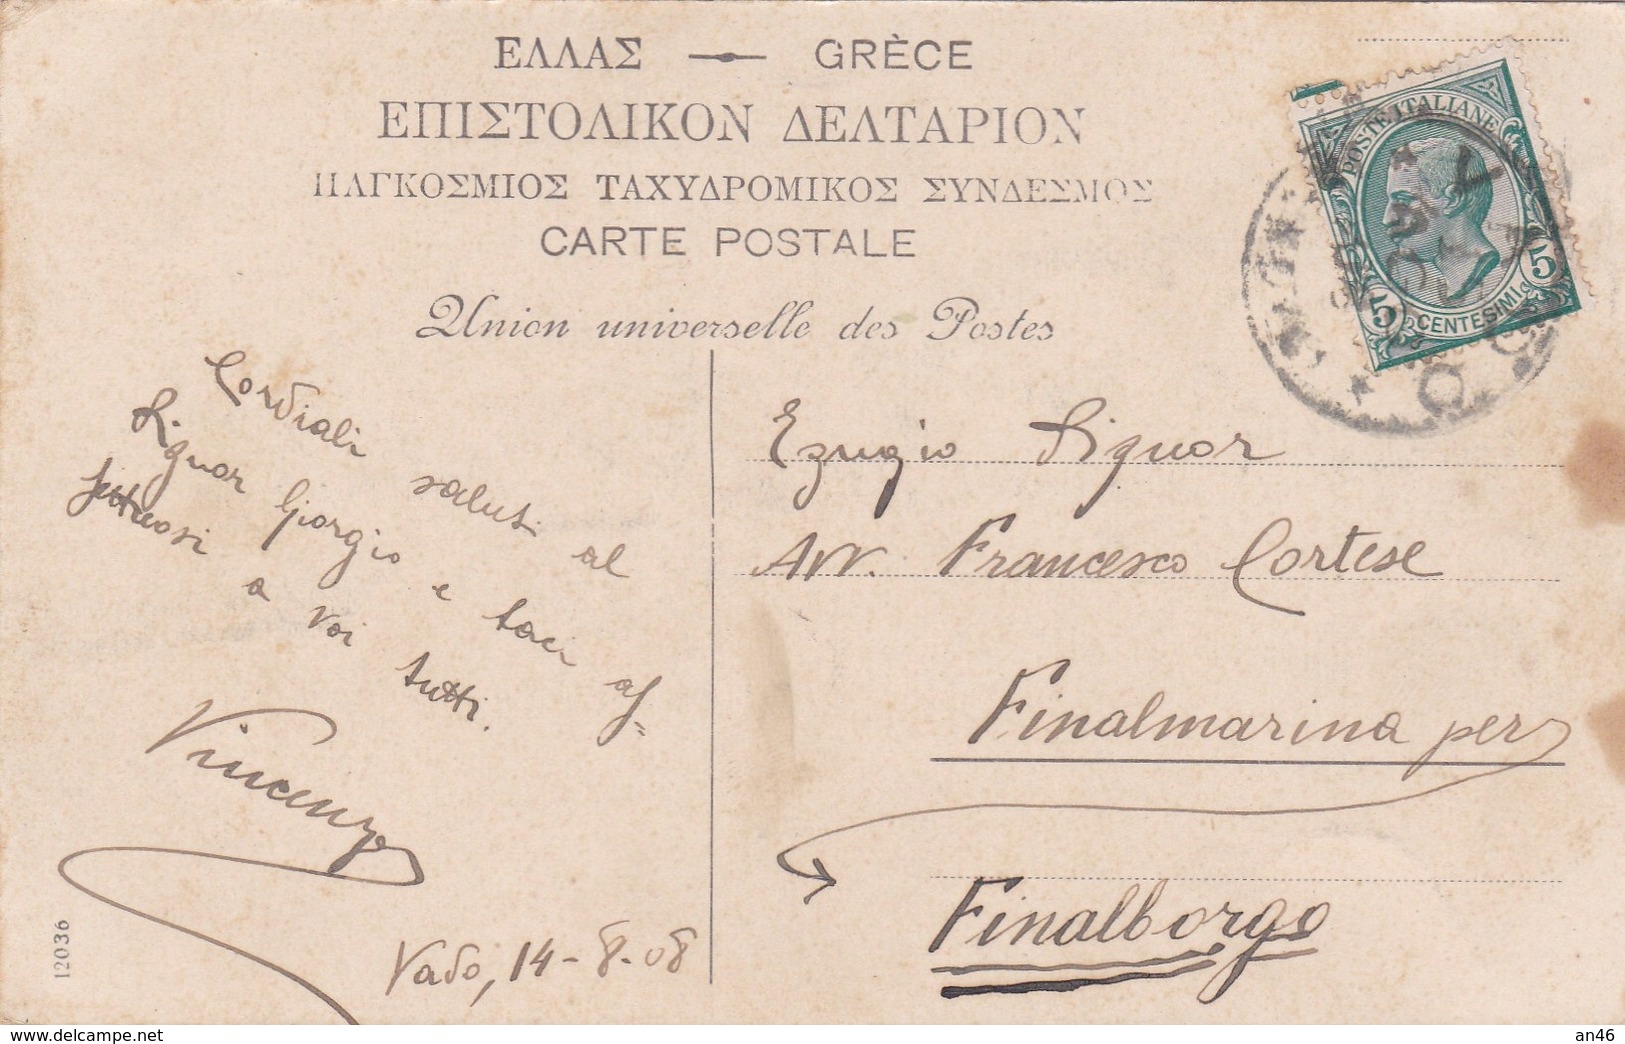 ΕΛΛΑΣ — GRÈCE
ΕΠΙΣΤΟΛΙΚΟΝ ΔΕΛΤΑΡΙΟΝ
ΠΑΓΚΟΣΜΙΟΣ ΤΑΧΥΔΡΟΜΙΚΟΣ ΣΥΝΔΕΣΜΟΣ
CARTE POSTALE
Union universelle des Postes
POSTE ITALIANE
5 CENTESIMI 5
Cordiali saluti al
Signor Giorgio e baci af=
fettuosi a voi tutti.
Vincenzo
Vado, 14-8-08
12036
Egregio Signor
Avv. Francesco Cortese
Finalmarina per
Finalborgo
an46